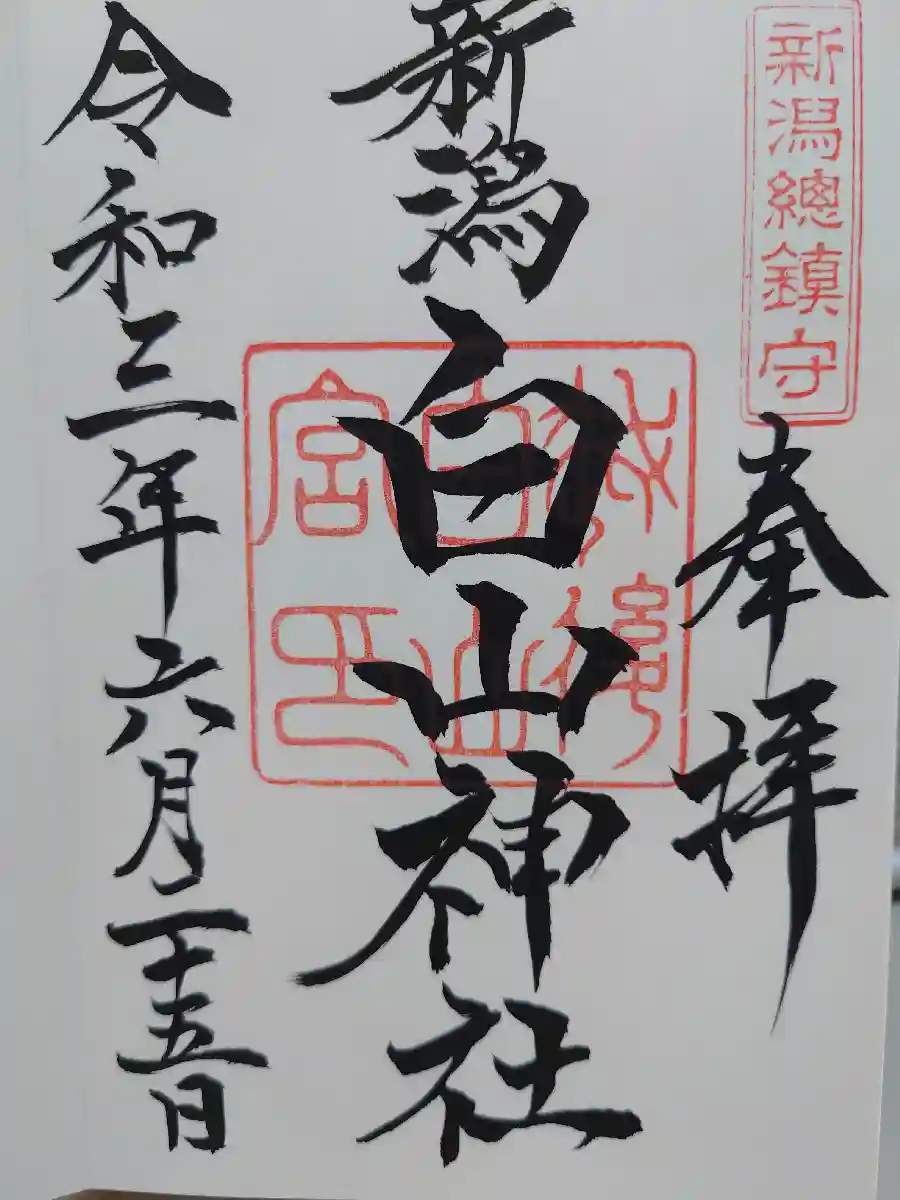 新潟總鎮守
奉拝
新潟白山神社
白山
宮印
令和三年六月二十五日